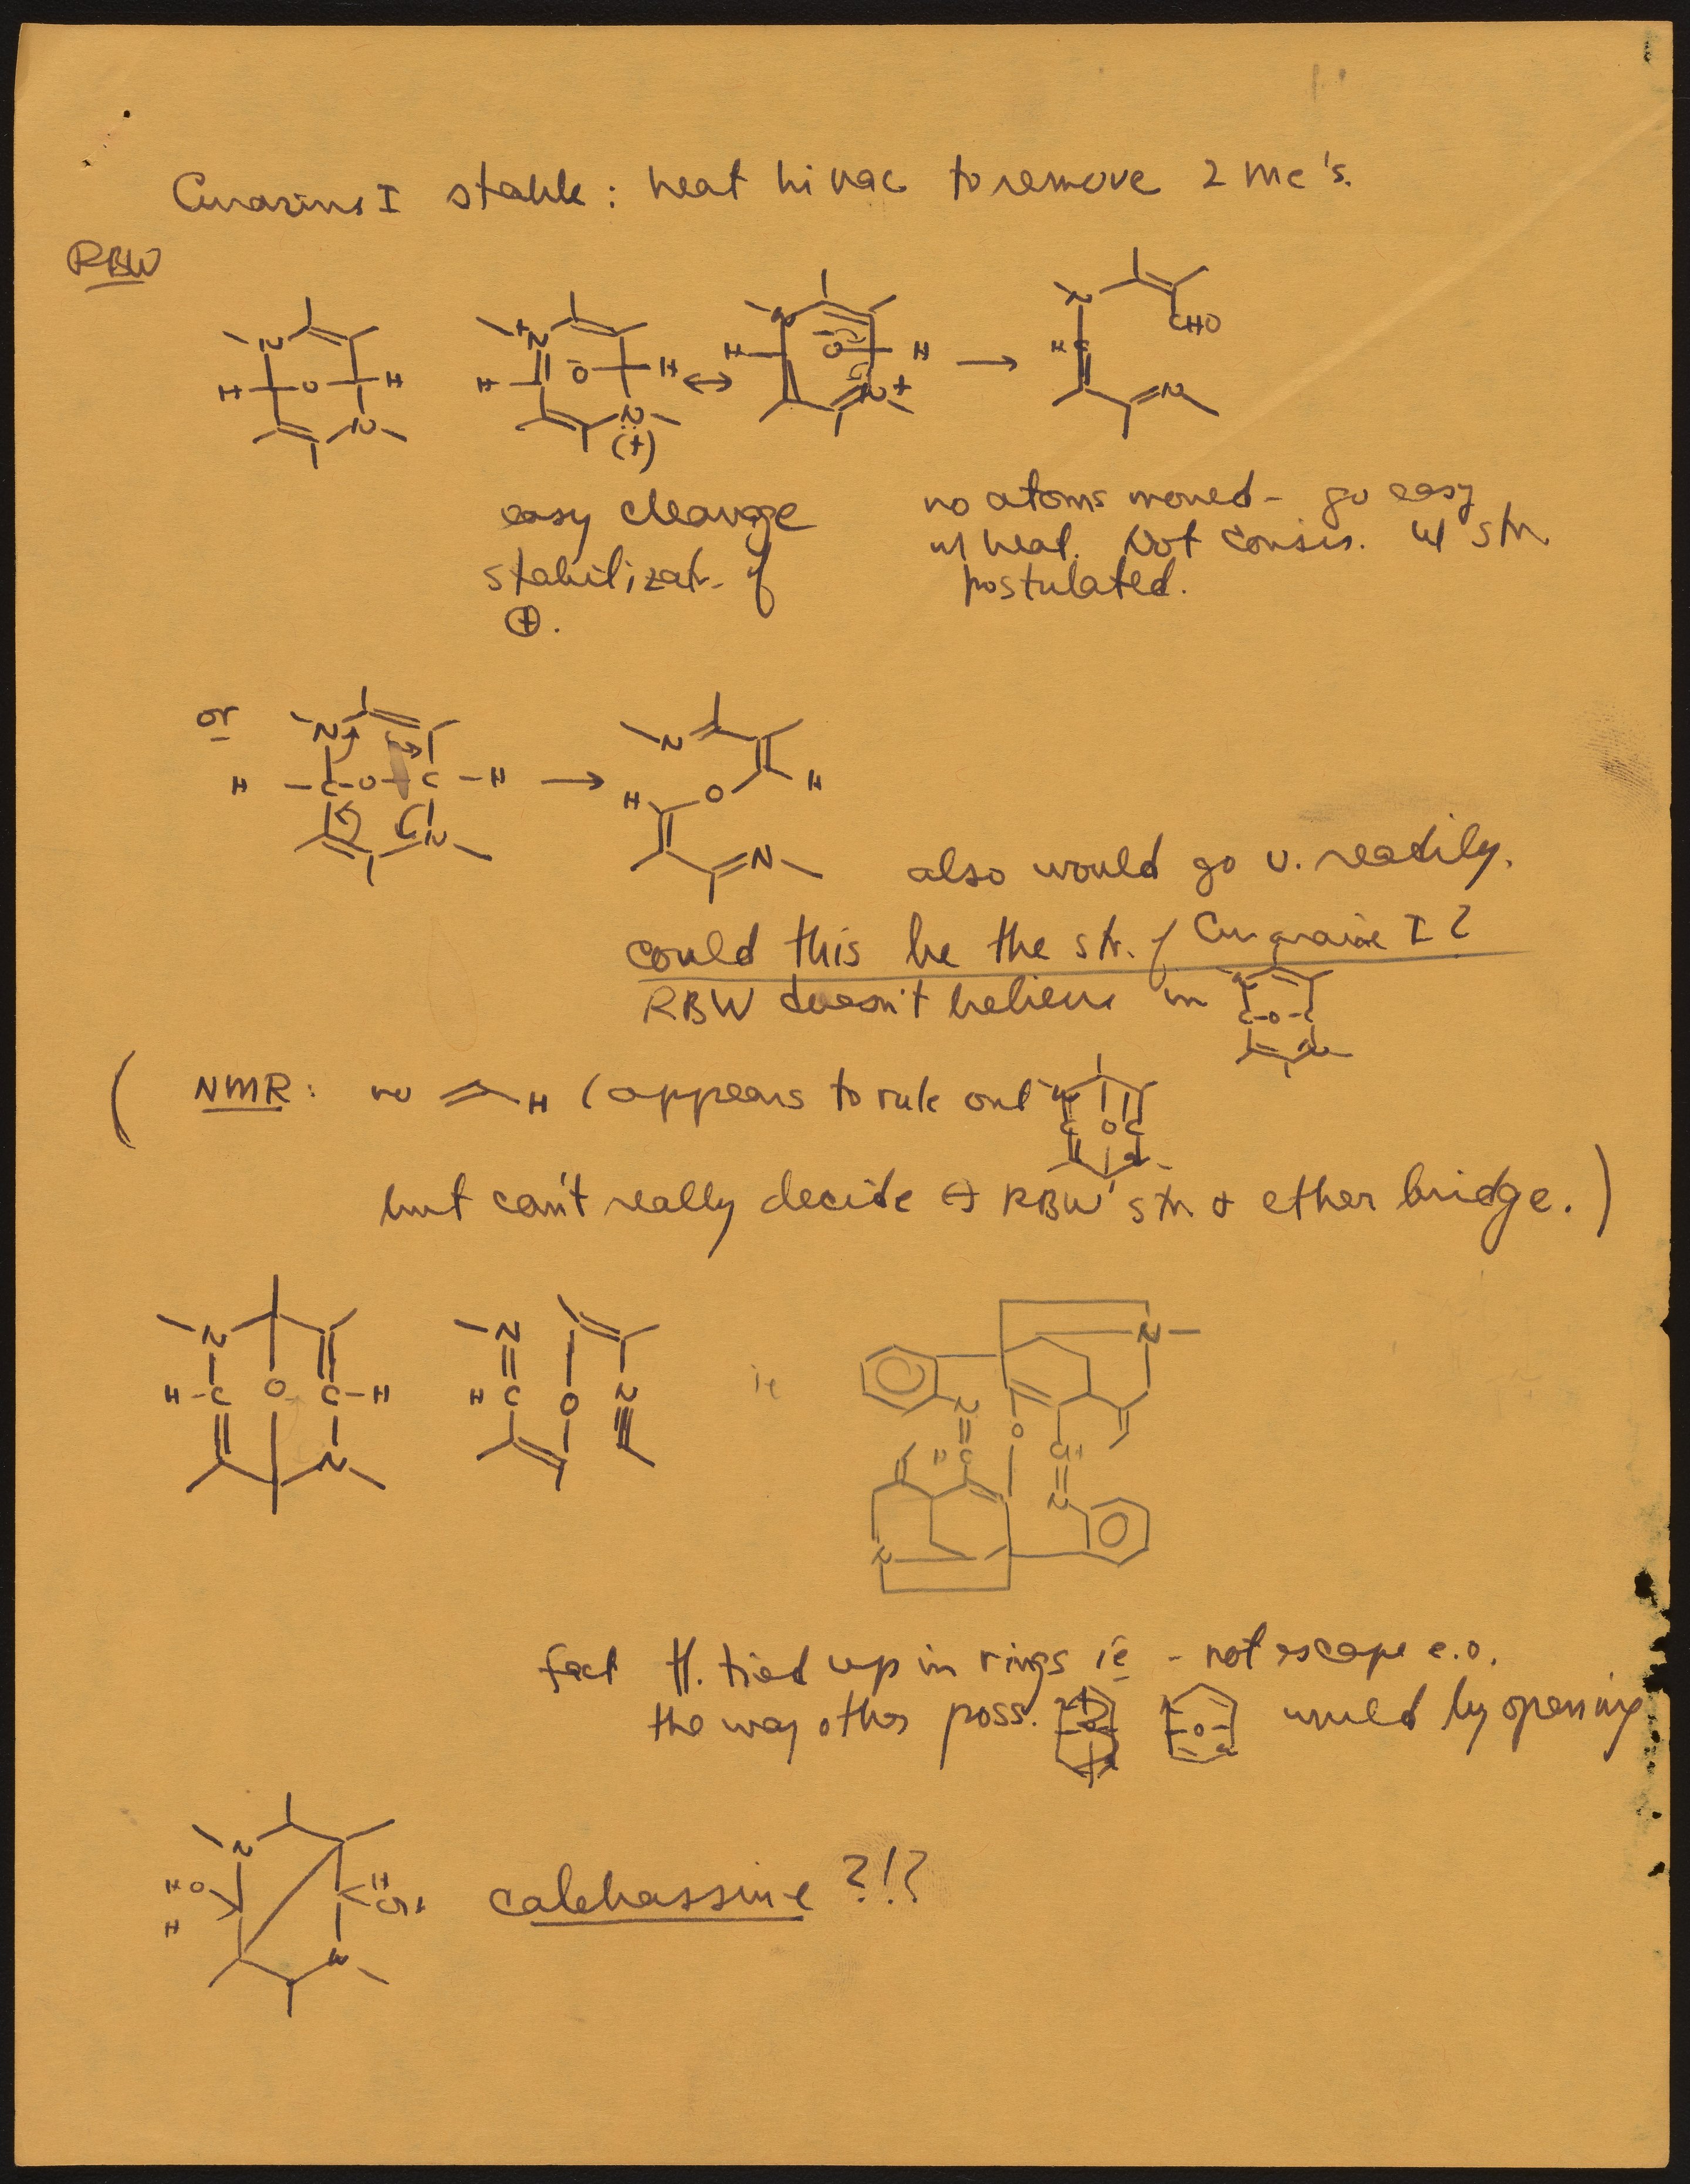 stable : heat hi vac to remove 2 Me's.
RBW
N H O H N
+N H O H N (+)
N H O H N +
N CHO H C N
easy cleavage
stabilizatn. of
⊕.
no atoms moved - go easy
w/ heat. Not consis. w/ str
postulated.
or N H C O C H N
N H H O N
also would go v. readily.
could this be the str. of I ?
RBW doesn't believe in N C-O-C N
( NMR : no H (appears to rule out N C O C N
but can't really decide ↔ RBW's str & ether bridge. )
N H-C O C-H N
N H C O N
ie
N N O H C CH N N
fact tied up in rings ie - not escape e.o.
the way other poss. O O would by opening
N HO H H OH N
calebassine ?!?